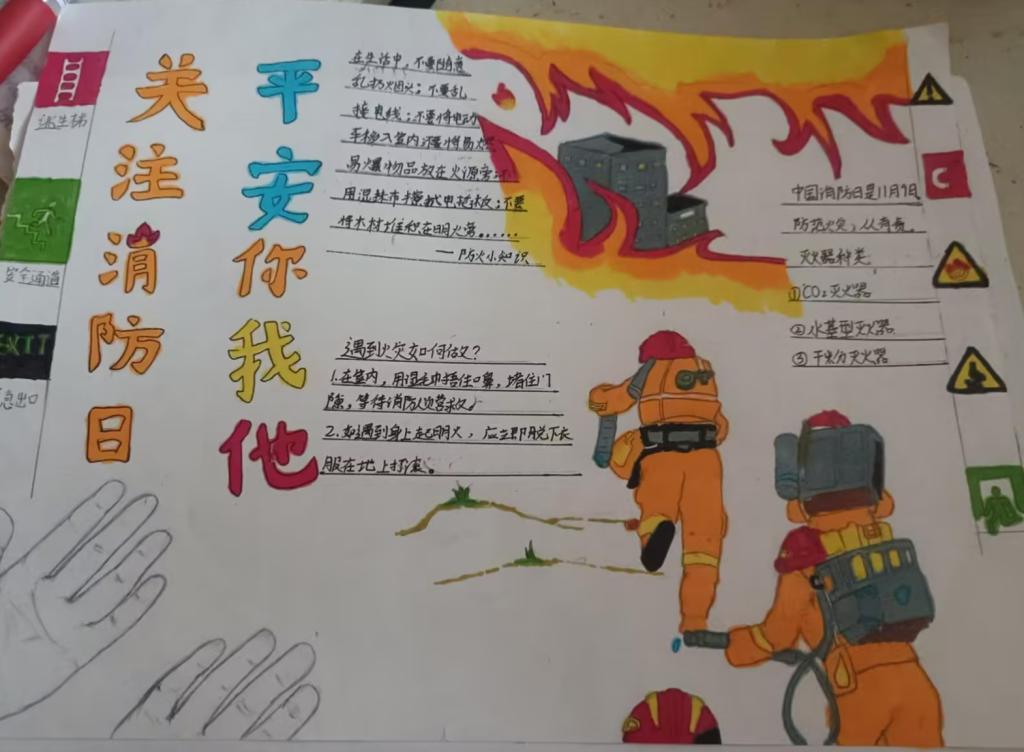 关注消防日
平安你我他
逃生梯
安全通道
EXIT
急出口
在生活中，不要随意
乱扔火；不要乱
接电线；不要将电动
车入室内不要将易燃
易爆物品放在火源旁
用湿抹布擦拭电；不要
将木材堆积在明火旁......
——防火小知识
遇到火灾如何做？
1.在室内，用湿毛巾捂住口鼻，堵住门
隙，等待消防人员营救。
2.如遇到身上起明火，应立即脱下衣
服在地上打滚。
中国消防日是11月9日
防范火灾，人有责.
灭火器种类
①CO₂灭火器
②水基型灭火器
③干粉灭火器